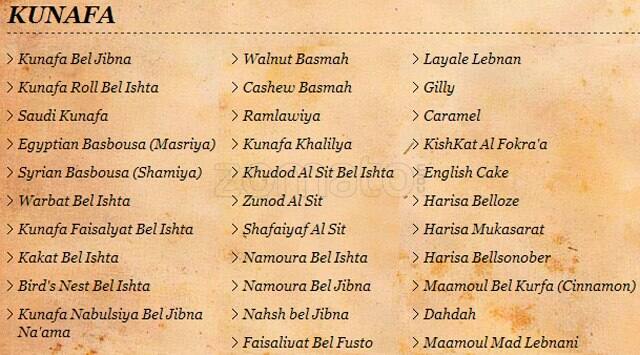 KUNAFA
Kunafa Bel Jibna
Kunafa Roll Bel Ishta
Saudi Kunafa
Egyptian Basbousa (Masriya)
Syrian Basbousa (Shamiya)
Warbat Bel Ishta
Kunafa Faisalyat Bel Ishta
Kakat Bel Ishta
Bird's Nest Bel Ishta
Kunafa Nabulsiya Bel Jibna
Na'ama
Walnut Basmah
Cashew Basmah
Ramlawiya
Kunafa Khalilya
Khudod Al Sit Bel Ishta
Zunod Al Sit
Shafaiyaf Al Sit
Namoura Bel Ishta
Namoura Bel Jibna
Nahsh bel Jibna
Faisaliyat Bel Fusto
Layale Lebnan
Gilly
Caramel
KishKat Al Fokra'a
English Cake
Harisa Belloze
Harisa Mukasarat
Harisa Bellsonober
Maamoul Bel Kurfa (Cinnamon)
Dahdah
Maamoul Mad Lebnani
zomato.com